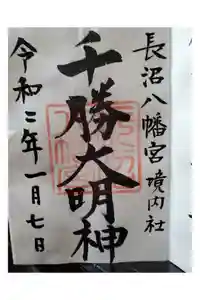 長沼八幡宮境内社
千勝大明神
令和二年一月七日